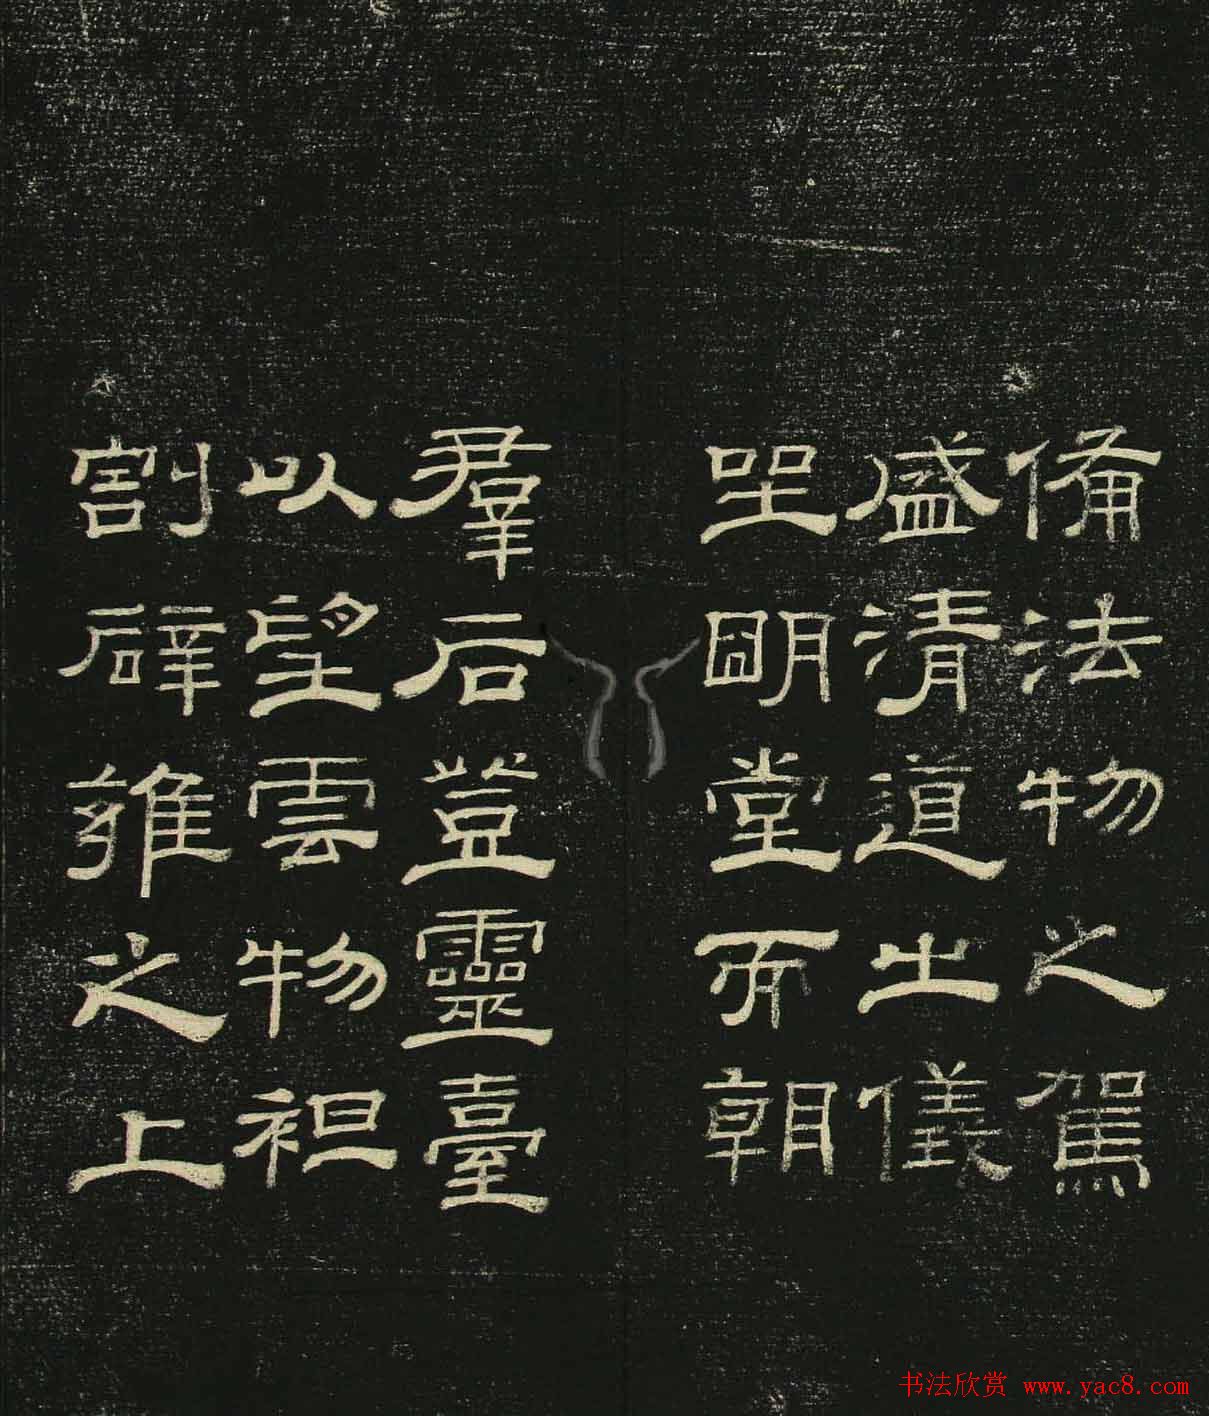 備法物之駕
盛清道出儀
坐朙堂而朝
羣后豋靈臺
以望雲物袒
割辟雍之上
书法欣赏 www.yac8.com